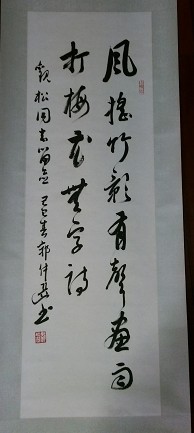 風搖竹影有聲畫雨
打梅花無字詩
觀松同志留念 己巳春郭仲選書